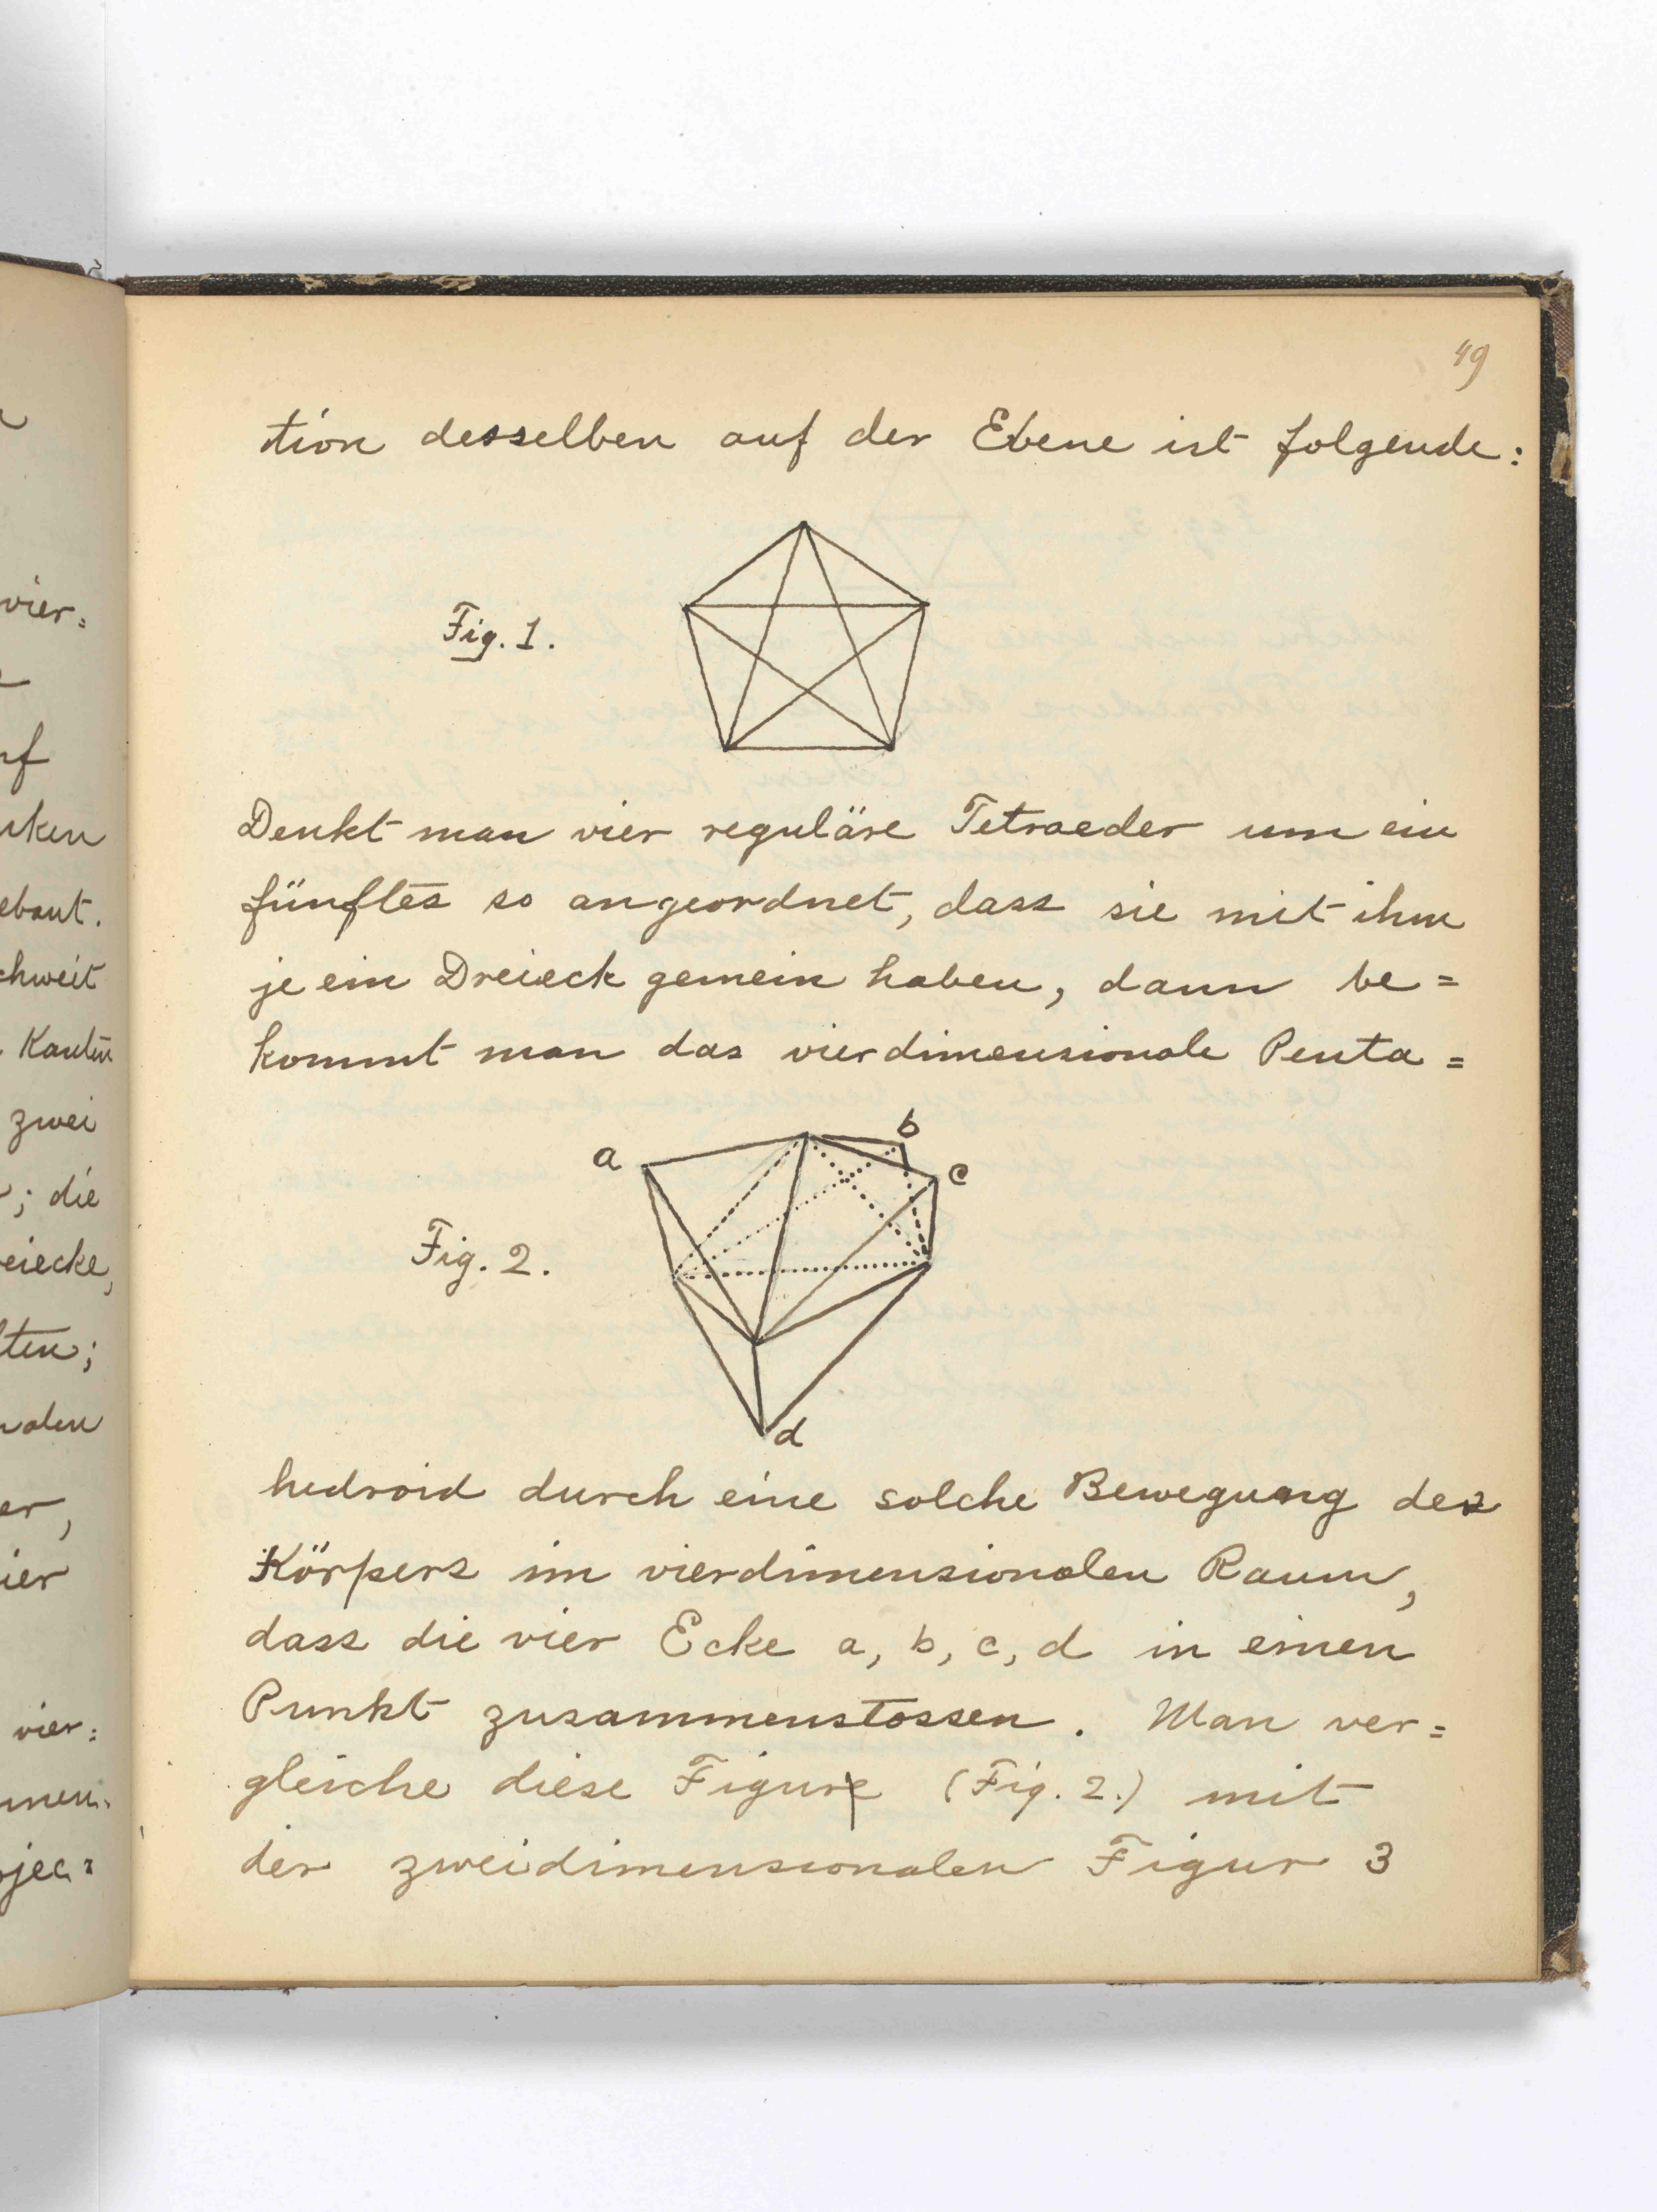 49
tion desselben auf der Ebene ist folgende:
Fig. 1.
Denkt man vier reguläre Tetraeder um ein
fünftes so angeordnet, dass sie mit ihm
je ein Dreieck gemein haben, dann be=
kommt man das vierdimensionale Penta=
a
b
c
Fig. 2.
d
hedroid durch eine solche Bewegung des
Körpers im vierdimensionalen Raum,
dass die vier Ecke a, b, c, d in einen
Punkt zusammenstossen. Man ver=
gleiche diese Figur (Fig. 2.) mit
der zweidimensionalen Figur 3
vier=
zwei
; die
vier=